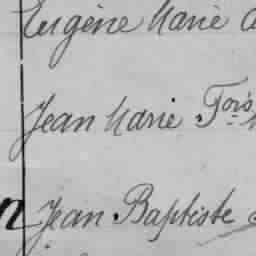 Eugène Marie
Jean Marie Fors
Jean Baptiste